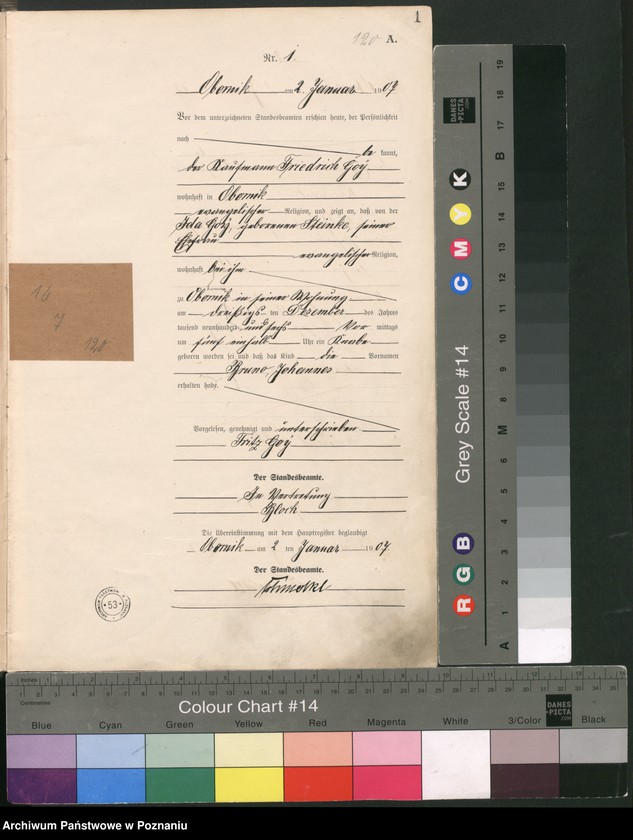 1
120 A.
Nr. 1.
Obornik am 2. Januar 1907
Vor dem unterzeichneten Standesbeamten erschien heute, der Persönlichkeit
nach
be kannt,
der Kaufmann Friedrich Goÿ
wohnhaft in Obornik
evangelischer Religion, und zeigt an, daß von der
Ida Goÿ, geborenen Steinke, seiner
Ehefrau
evangelischer Religion,
wohnhaft bei ihm
zu Obornik in seiner Wohnung
am dreißigs ten Dezember des Jahres
tausend neunhundert und sechs Vor mittags
um fünf einhalb Uhr ein Knabe
geboren worden sei und daß das Kind die Vornamen
Bruno, Johannes
erhalten habe.
Vorgelesen, genehmigt und unterschrieben
Fritz Goÿ
Der Standesbeamte.
In Vertretung
Bloch
Die Übereinstimmung mit dem Hauptregister beglaubigt
Obornik am 2 ten Januar 1907.
Der Standesbeamte.
16
7
120
53
DANES
PICTA
.COM
Grey Scale #14
A 1 2 3 4 5 6 M 8 9 10 11 12 13 14 15 B 17 18 19
R G B
C M Y K
Inches
Centimetres
Colour Chart #14
DANES
PICTA
.COM
Blue Cyan Green Yellow Red Magenta White 3/Color Black
Archiwum Państwowe w Poznaniu